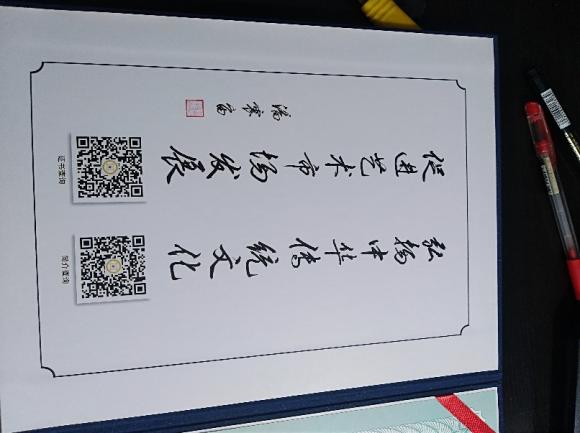 弘扬中华传统文化
促进艺术市场发展
简介查询
证书查询